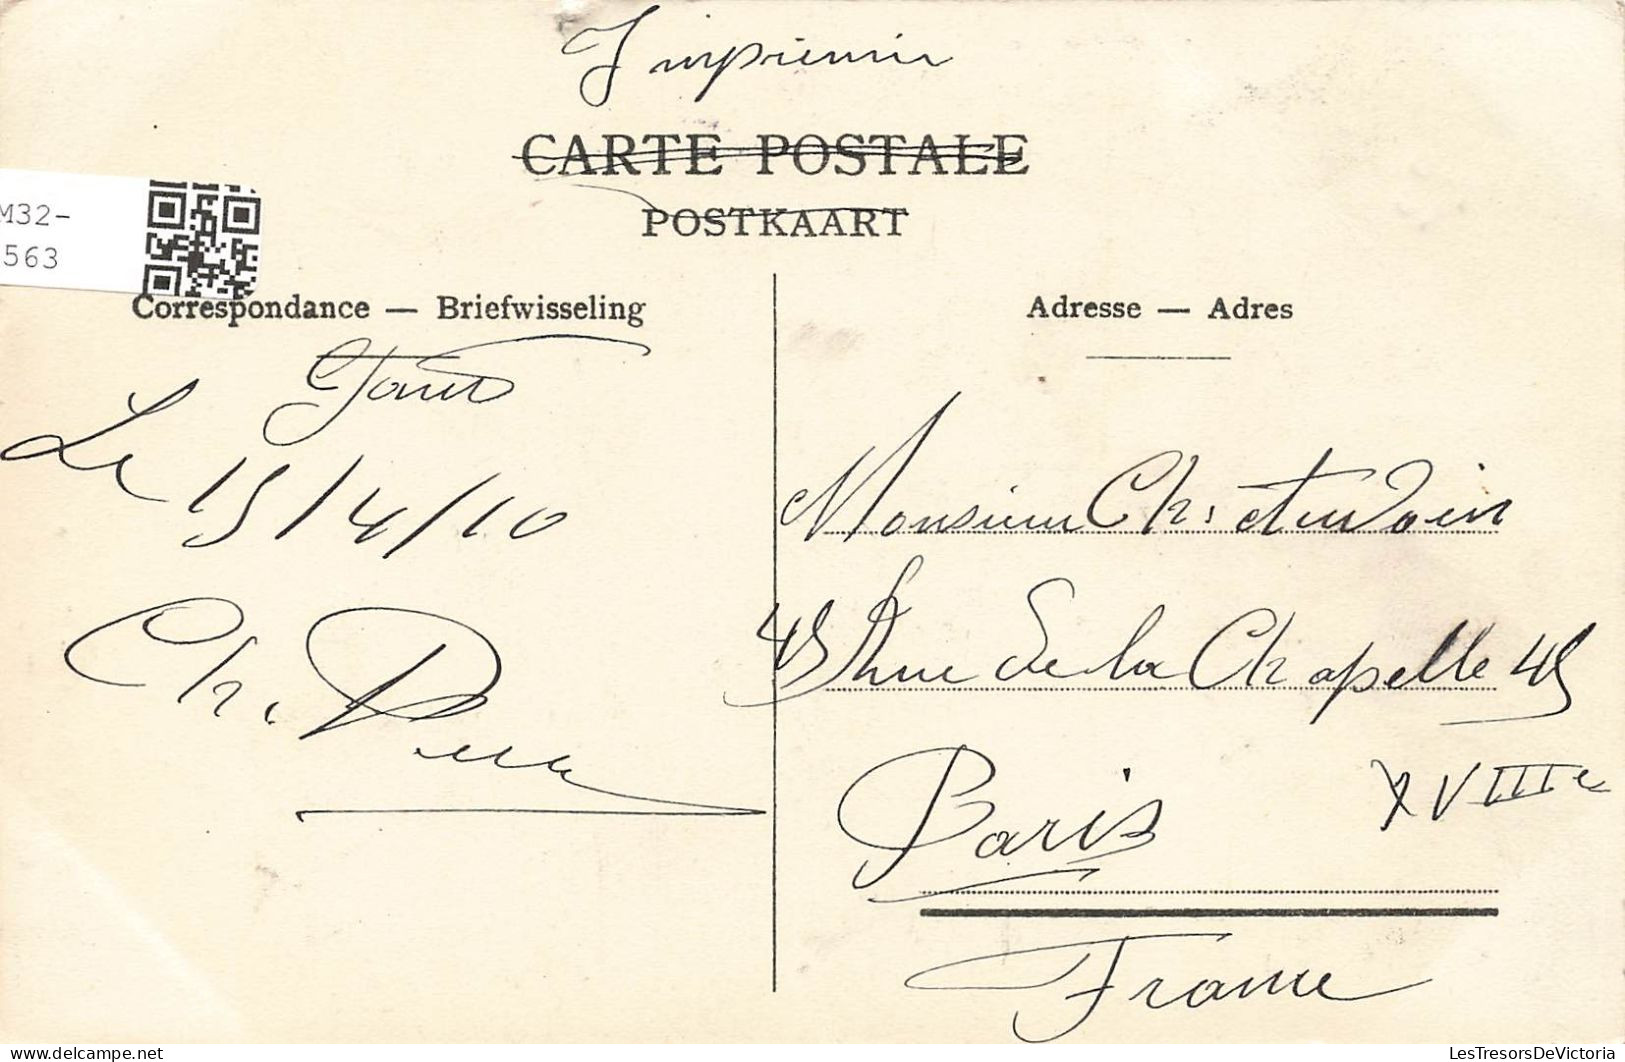 Imprimé
CARTE POSTALE
POSTKAART
M32-
563
Correspondance — Briefwisseling
Adresse — Adres
Le 15/4/10
Ch.
Monsieur Ch.
45 Rue de la Chapelle 45
Paris XVIIIe
France
LesTresorsDeVictoria